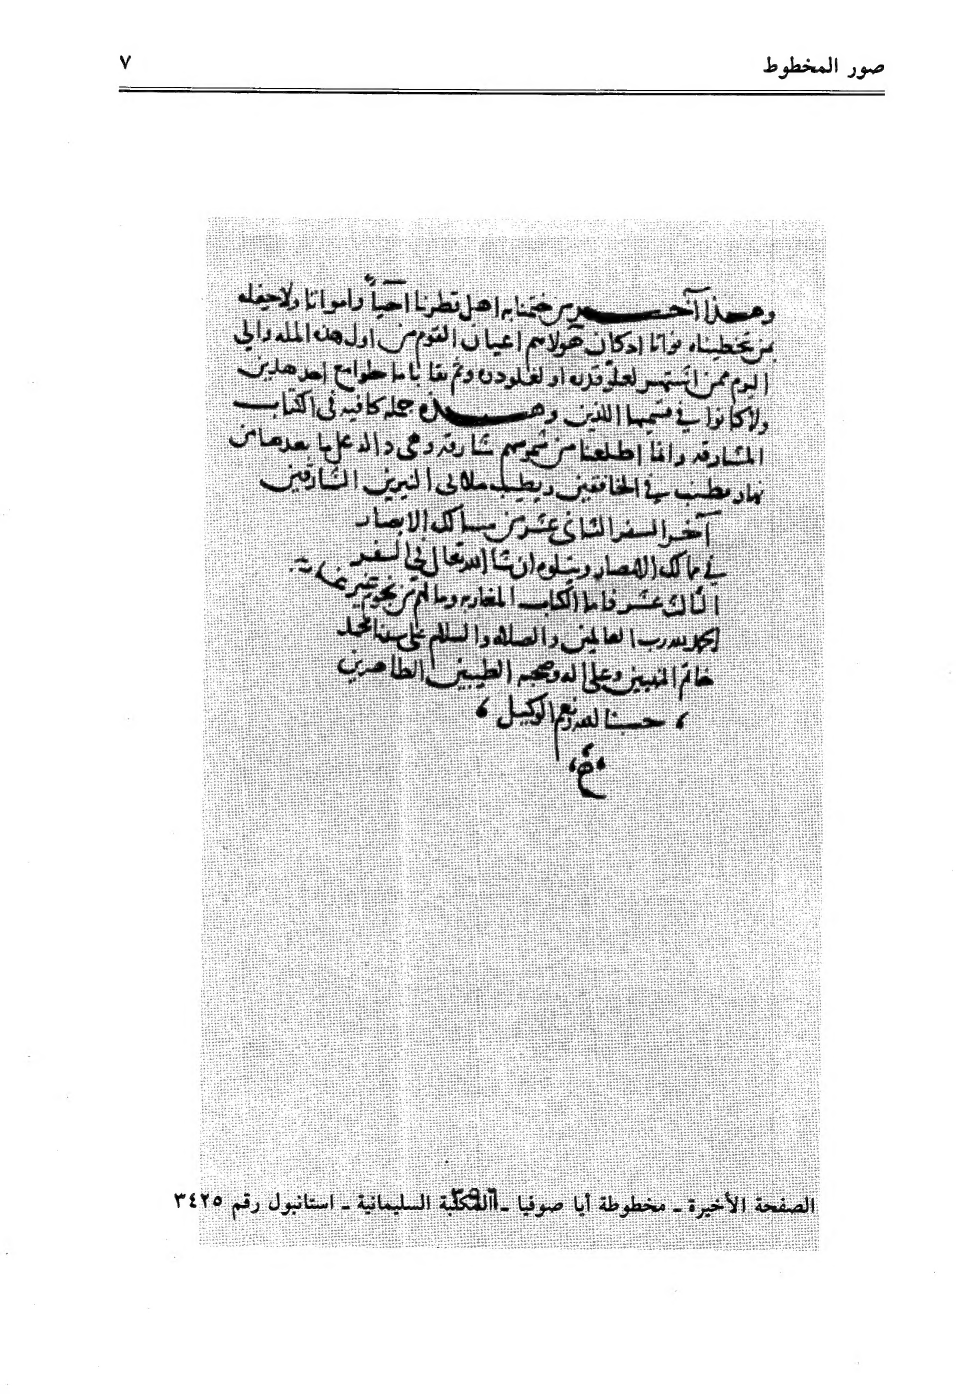 صور المخطوط
٧
وهذا آخر من ختمنا به اهل قطرنا احيآ وامواتا ولا حفله
بمن تخطيناه فواتا اذ كان هولا هم اعيان القوم من اول هذه المله والي
اليوم ممن اشتهر لعلو قدره او لغلو دره
ولا كانوا في قسيمها اللذين وهذه جمله كافيه في الكتاب
المشارقه وانما اطلعنا من شموسهم شارقه وهى داله على ما بعدها من
نهار مطنب في الخافقين ويطيب ملالى النيرين الشارقين
آخر السفر الثانى عشر من مسالك الابصار
في ممالك الامصار ويتلوه ان شا الله تعالى في السفر
الثالث عشر فاما الكتاب المغاربه وما لهم من نجوم غير غاربه
الحمد لله رب العالمين والصلاه والسلام على سيدنا محمد
خاتم النبيين وعلى اله وصحبه الطيبين الطاهرين
حسبنا الله ونعم الوكيل
الصفحة الأخيرة ـ مخطوطة أيا صوفيا ـ المكتبة السليمانية ـ استانبول رقم ٣٤٢٥